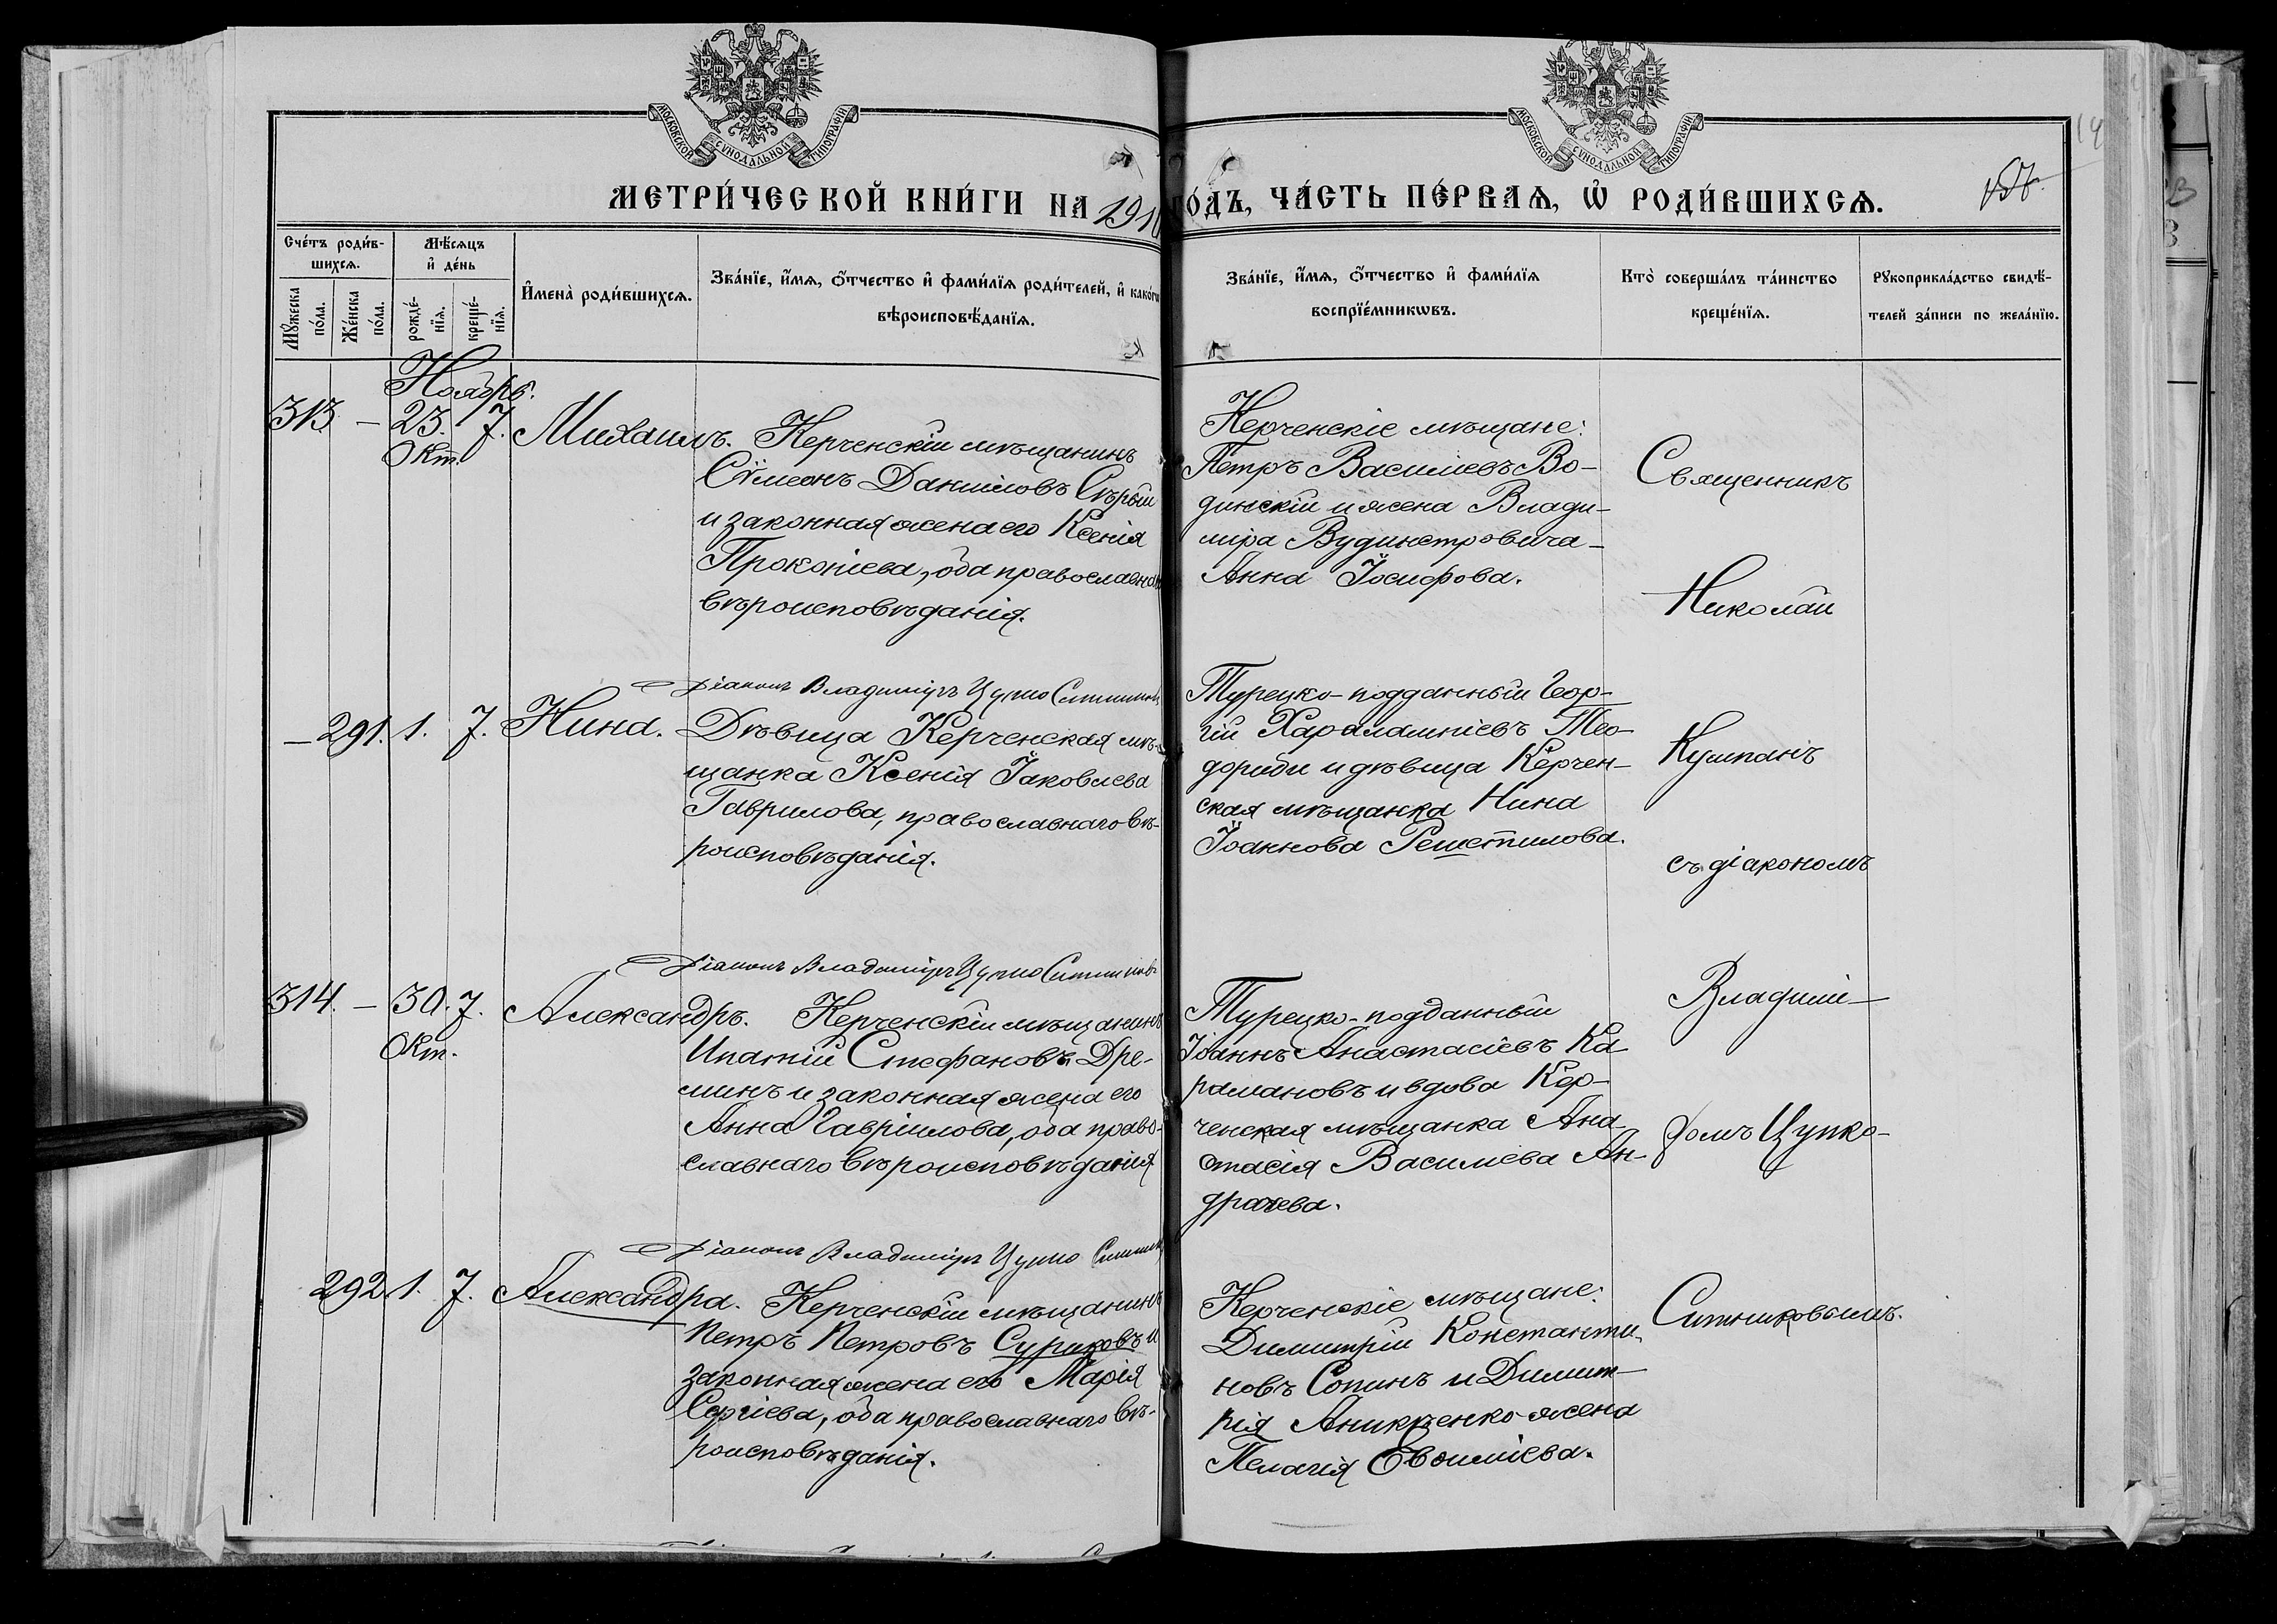 МОСКОВСКОЙ СѴНОДАЛЬНОЙ ТИПОГРАФІИ
МОСКОВСКОЙ СѴНОДАЛЬНОЙ ТИПОГРАФІИ
МЕТРИ́ЧЕСКОЙ КНИ́ГИ НА 1910 ГО́ДЪ, ЧА́СТЬ ПЕ́РВАѦ, Ѡ҆ РОДИ́ВШИХСѦ.
Сче́тъ роди́в-
шихсѧ.
Мꙋ́жеска
по́ла.
Же́нска
по́ла.
Мѣ́сѧцъ
и҆ де́нь
рожде́-
нїѧ.
креще́-
нїѧ.
И҆мена̀ роди́вшихсѧ.
Зва́нїе, и҆́мѧ, ѻ҆́тчество и҆ фами́лїѧ роди́телей, и҆ како́гѡ
вѣроисповѣ́данїѧ.
Зва́нїе, и҆́мѧ, ѻ҆́тчество и҆ фами́лїѧ
воспрїе́мникѡвъ.
Кто̀ соверша́лъ та́инство
креще́нїѧ.
Рꙋкоприкла́дство свидѣ́-
телей за́писи по жела́нїю.
Ноябрь.
313 – 23. 7. Михаилъ.
Окт.
Керченскій мѣщанинъ
Сѵмеонъ Даниловъ Сѣрый
и законная жена его Ксенія
Прокопіева, оба православнаго
вѣроисповѣданія.
Керченскіе мѣщане:
Петръ Василіевъ Во-
динскій и жена Влади-
міра Вудинстровича –
Анна Іосифова.
Священникъ
Николай
Діаконъ Владиміръ Цупко Ситников
– 291. 1. 7. Нина.
Дѣвица Керченская мѣ-
щанка Ксенія Іаковлева
Гаврилова, православнаго вѣ-
роисповѣданія.
Турецко-подданный Геор-
гій Харалампіевъ Тео-
дориди и дѣвица Керчен-
ская мѣщанка Нина
Іоаннова Решетилова.
Кушпанъ
съ діакономъ
Діаконъ Владиміръ Цупко Ситников
314. – 30. 7. Александръ.
Окт.
Керченскій мѣщанинъ
Ипатій Стефановъ Дре-
минъ и законная жена его
Анна Гавріилова, оба право-
славнаго вѣроисповѣданія
Турецко-подданный
Іоаннъ Анастасіевъ Ка
рамановъ и вдова Кер-
ченская мѣщанка Ана
стасія Василіева Ан-
драчева.
Владимі-
ромъ Цупко-
Діаконъ Владиміръ Цупко Ситник
292. 1. 7. Александра.
Керченскій мѣщанинъ
Петръ Петровъ Суриковъ и
законная жена его Марія
Сергіева, оба православнаго вѣ-
роисповѣданія.
Керченскіе мѣщане:
Димитрій Константи
новъ Сопинъ и Димит-
рія Аникѣенко жена
Пелагія Евѳиміева.
Ситниковымъ.